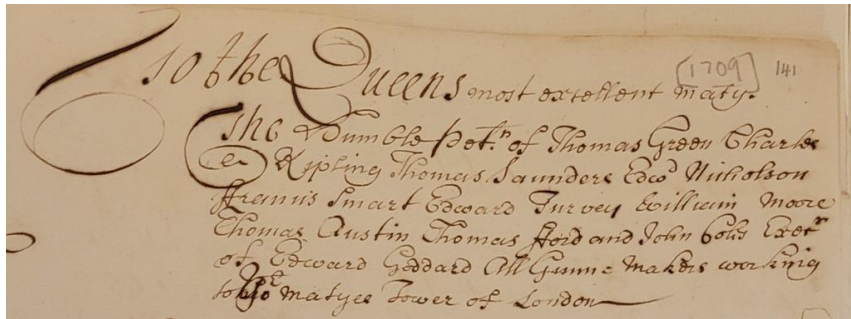 To the Queens most excellent Maty. [1709] 141
The Humble Petn. of Thomas Green Charles
Kipling Thomas Saunders Edwd Nicholson
ffrancis Smart Edward Turvey William Moore
Thomas Austin Thomas fford and John Cole Exetr
of Edward Goddard All Gunne Makers working
to yor Matyes Tower of London